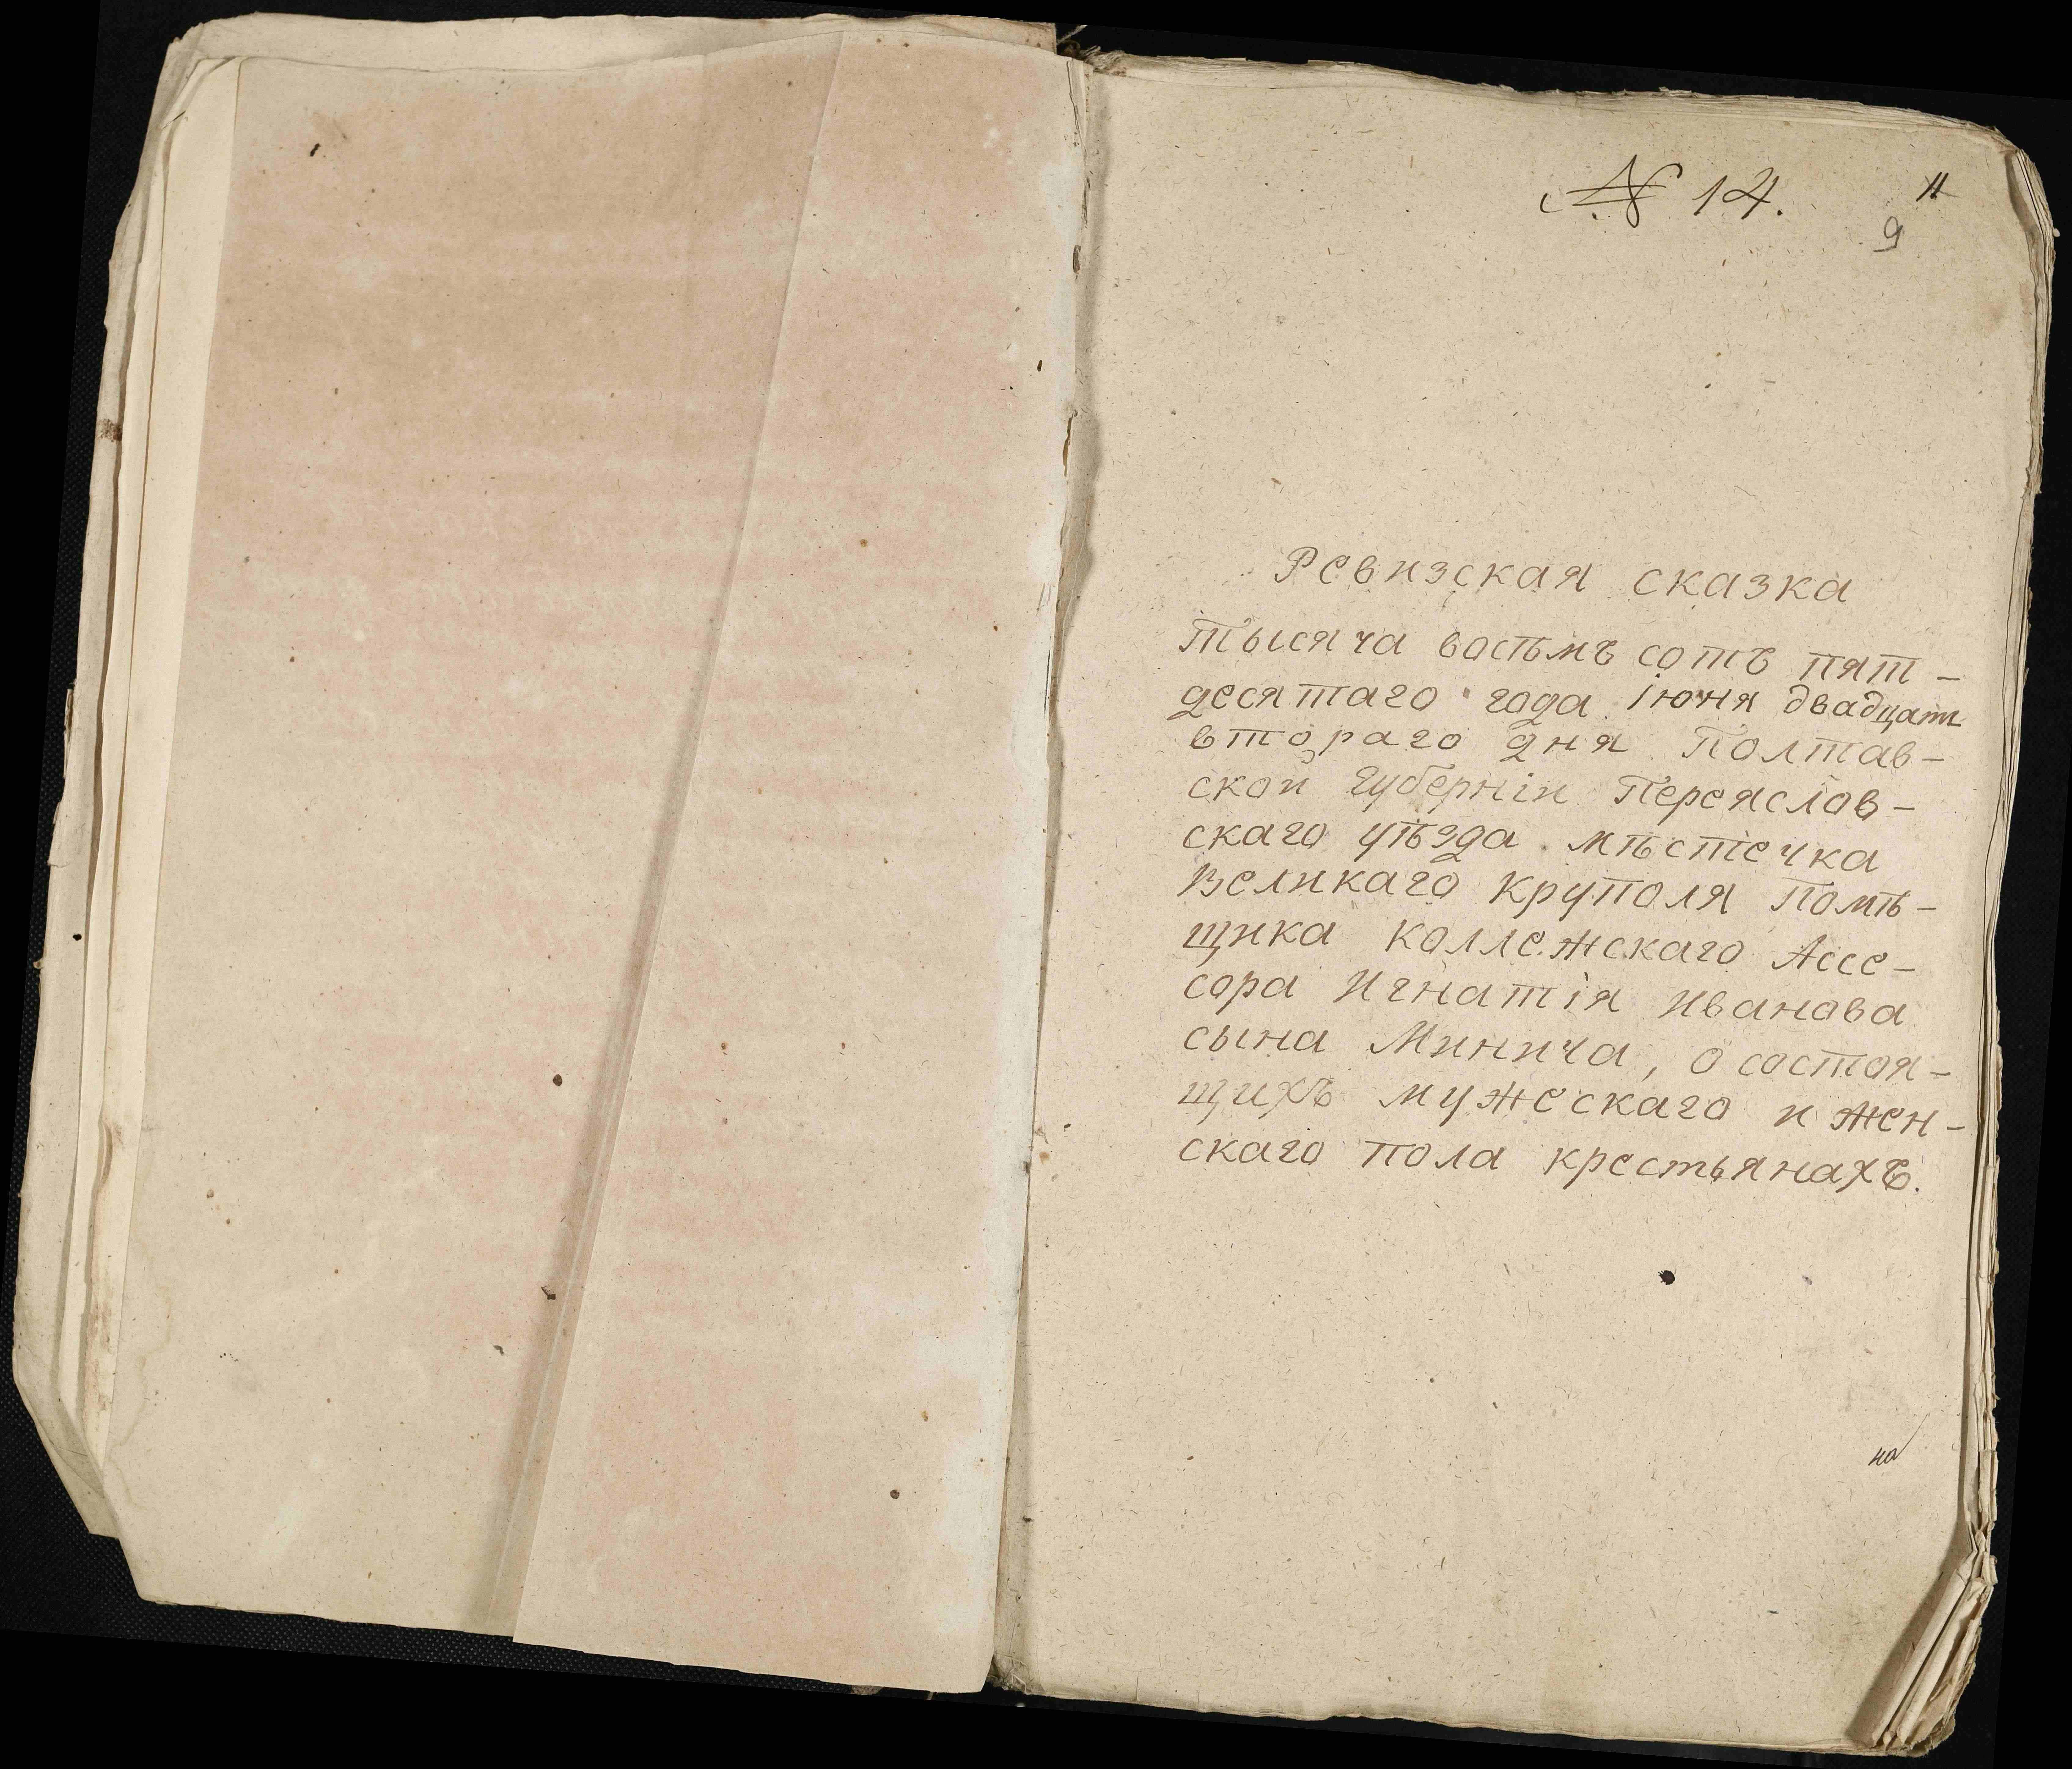 № 14.
11
9
Ревизская сказка
тысяча восъмъ сотъ пят-
десятаго года іюня двадцати
втораго дня Полтав-
ской Губерніи Переяслов-
скаго уѣзда мѣстечка
Великаго Круполя Помѣ-
щика Коллежскаго Ассе-
сора Игнатія Иванова
сына Минича, о состоя-
щихъ мужескаго и жен-
скаго пола крестьянахъ.
на